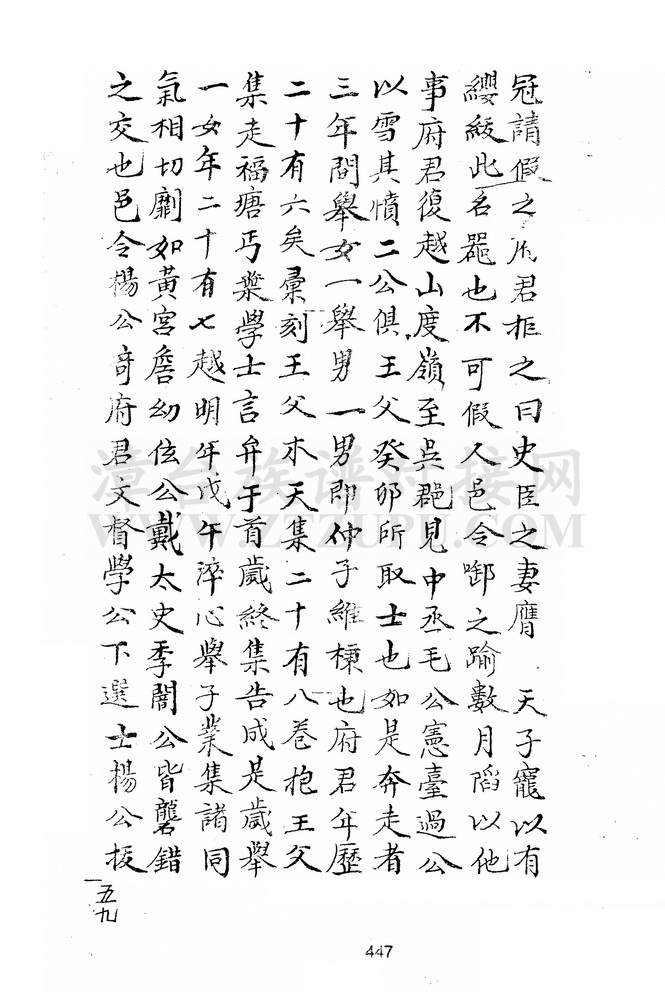 冠請假之府君拒之曰史臣之妻膺 天子寵以有
纓緌此名噐也不可假人邑令啣之踰數月謟以他
事府君復越山度嶺至吳郡見中丞毛公憲臺過公
以雪其憤二公俱王父癸卯所取士也如是奔走者
三年間舉女一舉男一男即仲子維棟也府君年歷
二十有六矣彚刻王父木天集二十有八卷抱王父
集走福唐丐葉學士言弁于首歲終集告成是歲舉
一女年二十有七越明年戊午淬心舉子業集諸同
氣相切劘如黃宮詹幼伭公戴太史季闇公皆礱錯
之交也邑令楊公竒府君文督學公下選士楊公拔
五九
447
潭台族谱对接网
WWW.ZTZUPU.COM